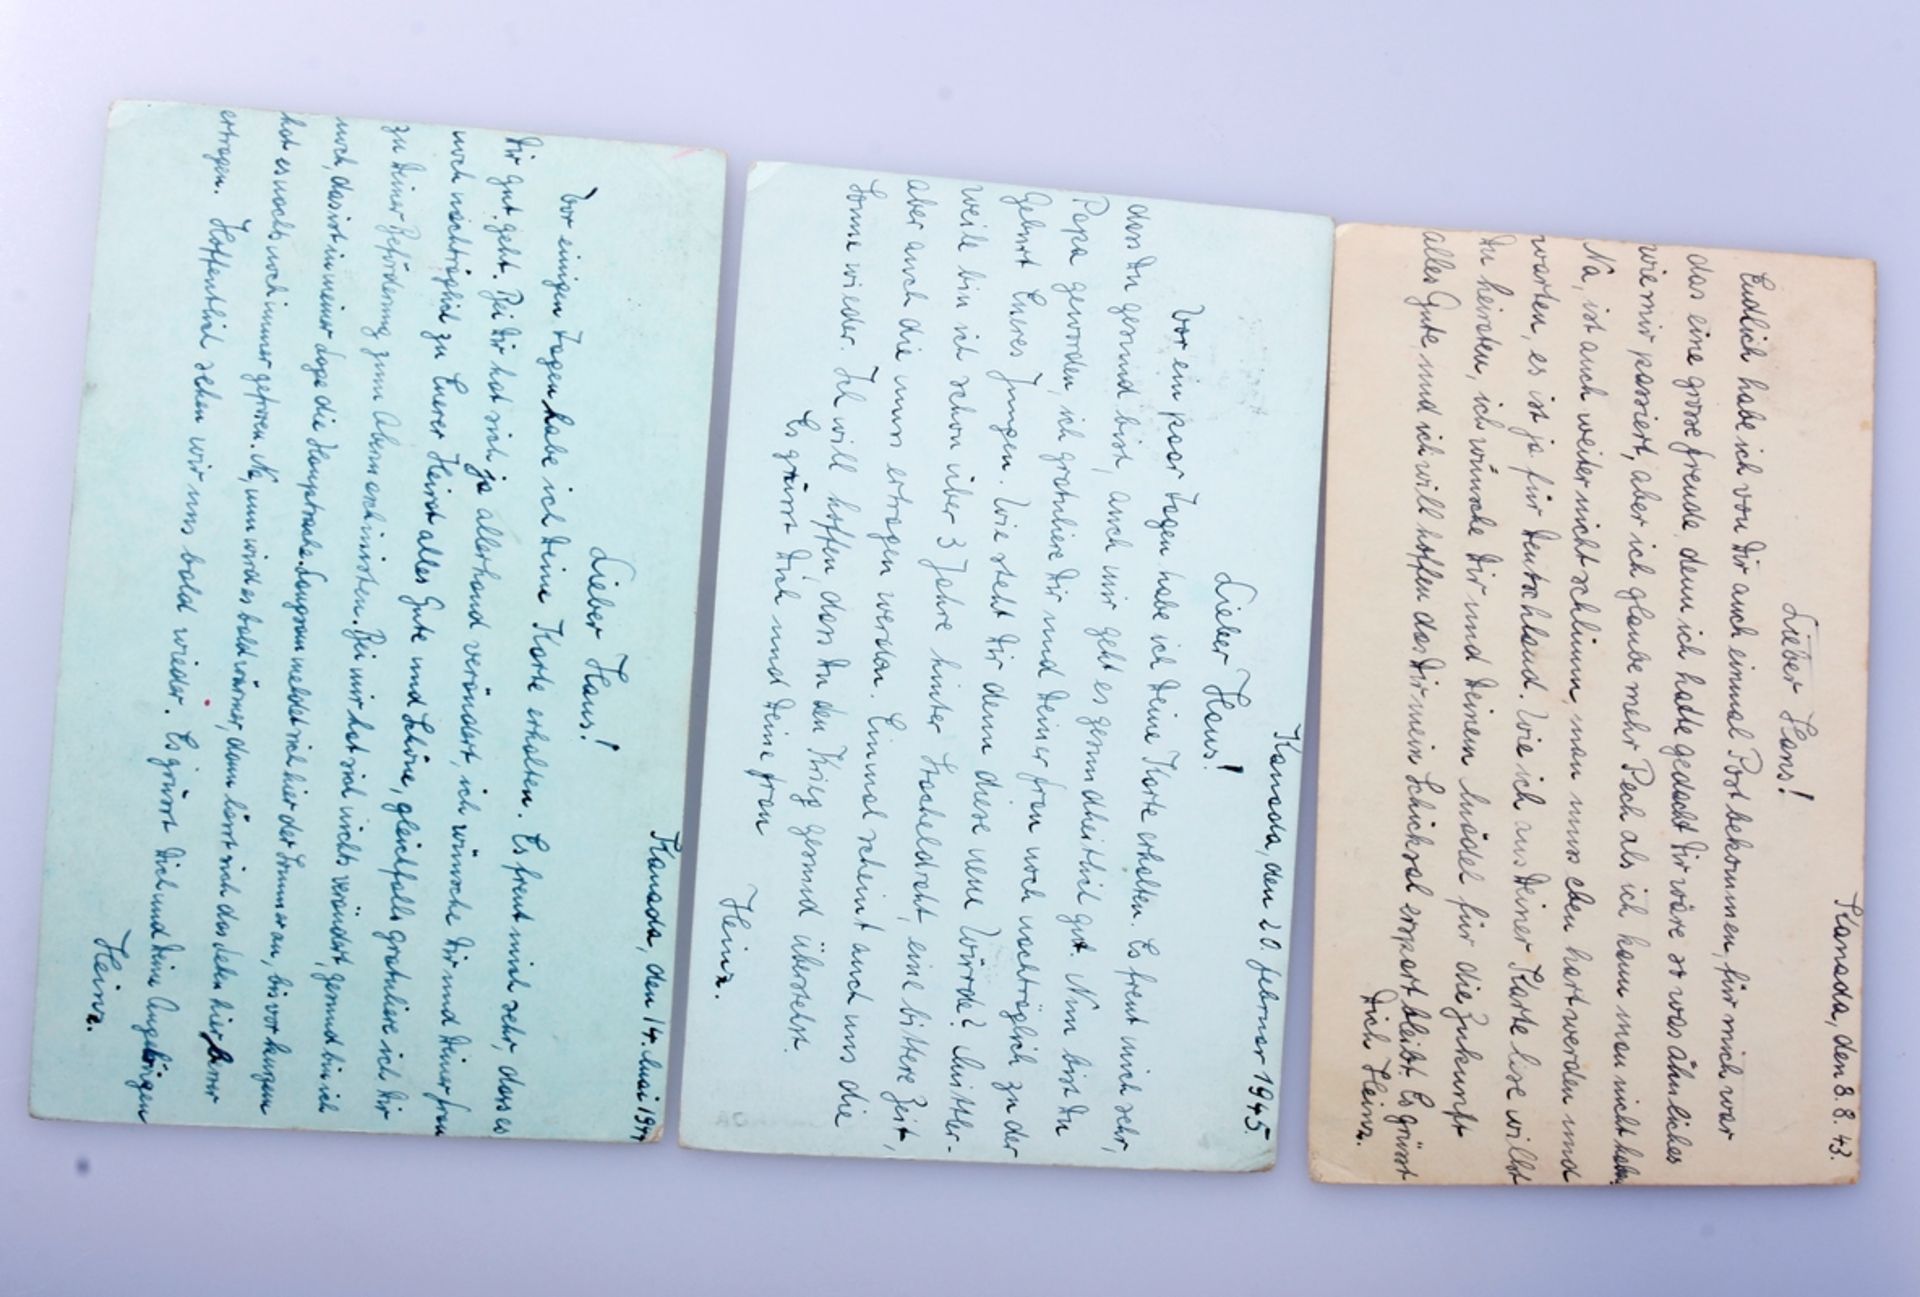 Kanada, den 14. Mai 1944
Lieber Hans!
Vor einigen Tagen habe ich Deine Karte erhalten. Es freut mich sehr, dass es
Dir gut geht. Bei Dir hat sich ja allerhand verändert, ich wünsche Dir und Deiner Frau
noch nachträglich zu Eurer Heirat alles Gute und Schöne, gleichfalls gratuliere ich Dir
zu Deiner Beförderung zum Oberarchivisten. Bei mir hat sich nichts verändert, gesund bin ich
noch, das ist in meiner Lage die Hauptsache. Langsam meldet sich hier der Sommer an, bis vor kurzem
hat es nachts noch immer gefroren. Na, nun wird es bald wärmer, dann lässt sich das Leben hier besser
ertragen. Hoffentlich sehen wir uns bald wieder. Es grüsst Dich und Deine Angehörigen
Heinz.
Kanada, den 20. Februar 1945.
Lieber Hans!
Vor ein paar Tagen habe ich Deine Karte erhalten. Es freut mich sehr,
dass Du gesund bist, auch mir geht es gesundheitlich gut. Nun bist Du
Papa geworden, ich gratuliere Dir und Deiner Frau noch nachträglich zu der
Geburt Eures Jungen. Wie steht Dir denn diese neue Würde? Mittler-
weile bin ich schon über 3 Jahre hinter Stacheldraht, eine bittere Zeit,
aber auch die muss ertragen werden. Einmal scheint auch uns die
Sonne wieder. Ich will hoffen, dass Du den Krieg gesund überstehst.
Es grüsst Dich und Deine Frau
Heinz.
Kanada, den 8.8.43.
Lieber Hans!
Endlich habe ich von Dir auch einmal Post bekommen, für mich war
das eine grosse Freude, denn ich hatte gedacht Dir wäre so was ähnliches
wie mir passiert, aber ich glaube mehr Pech als ich kann man nicht haben.
Na, ist auch weiter nicht schlimm, man muss eben hart werden und
warten, es ist ja für Deutschland. Wie ich aus Deiner Karte lese willst
Du heiraten, ich wünsche Dir und Deinem Mädel für die Zukunft
alles Gute und ich will hoffen das Dir mein Schicksal erspart bleibt. Es grüsst
Dich Heinz.